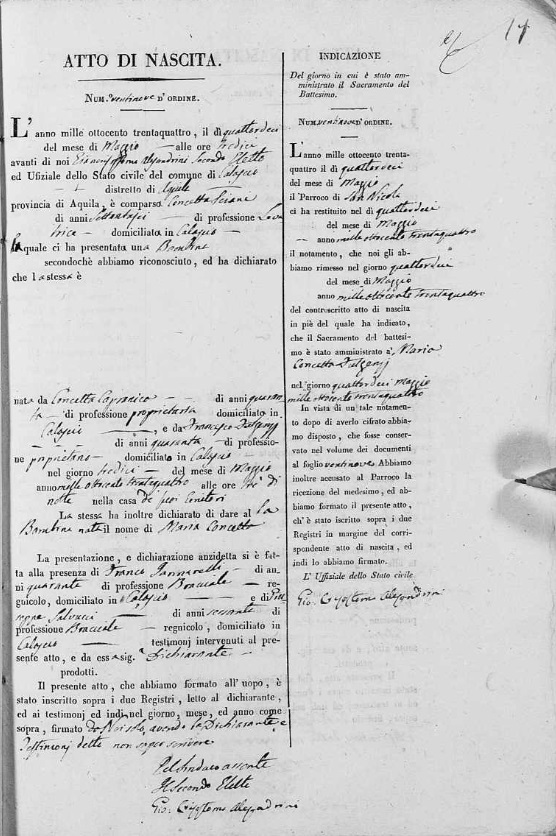 17
ATTO DI NASCITA.
NUM. ventinove D'ORDINE.
L'anno mille ottocento trentaquattro, il dì quattordeci
del mese di Maggio — alle ore tredici
avanti di noi Alejandrini Secondo Eletto
ed Ufiziale dello Stato civile del comune di Calascio
distretto di Aquila
provincia di Aquila, è comparsa Concetta
di anni — di professione Leva
trice — domiciliata in Calascio —
la quale ci ha presentata una Bambina
secondochè abbiamo riconosciuto, ed ha dichiarato
che la stessa è
nata da Concetta — di anni quaran
ta — di professione proprietaria domiciliata in
Calascio —, e da Francesco
di anni quaranta di professio-
ne proprietario — domiciliato in Calascio —
nel giorno tredici — del mese di Maggio
anno mille ottocento trentaquattro alle ore tre di
notte nella casa de' suoi Genitori
La stessa ha inoltre dichiarato di dare al la
Bambina nata il nome di Maria Concetta
La presentazione, e dichiarazione anzidetta si è fat-
ta alla presenza di Franco di an-
ni quaranta di professione Bracciale — re-
gnicolo, domiciliato in Calascio — e di Giu
seppe Salvucci — di anni sessanta di
professione Bracciale — regnicolo, domiciliato in
Calascio — testimonj intervenuti al pre-
sente atto, e da essa sig.ª Dichiarante
prodotti.
Il presente atto, che abbiamo formato all'uopo, è
stato inscritto sopra i due Registri, letto al dichiarante,
ed ai testimonj ed indi, nel giorno, mese, ed anno come
sopra, firmato da Noi solo, avendo la Dichiarante, e
Testimonj detto non saper scrivere
Pel Sindaco assente
Il Secondo Eletto
Gio: Crisostomo Alejandrini
INDICAZIONE
Del giorno in cui è stato am-
ministrato il Sacramento del
Battesimo.
NUM. ventinove D'ORDINE.
L'anno mille ottocento trenta-
quattro il dì quattordeci
del mese di Maggio
il Parroco di San Nicola
ci ha restituito nel dì quattordeci
del mese di Maggio
— anno mille ottocento trentaquattro
il notamento, che noi gli ab-
biamo rimesso nel giorno quattordeci
del mese di Maggio
anno mille ottocento trentaquattro
del controscritto atto di nascita
in piè del quale ha indicato,
che il Sacramento del battesi-
mo è stato amministrato a Maria
Concetta
nel giorno quattordeci Maggio
mille ottocento trentaquattro
In vista di un tale notamento
dopo di averlo cifrato abbia-
mo disposto, che fosse conser-
vato nel volume dei documenti
al foglio ventinove. Abbiamo
inoltre accusato al Parroco la
ricezione del medesimo, ed ab-
biamo formato il presente atto,
ch'è stato iscritto sopra i due
Registri in margine del corri-
spondente atto di nascita, ed
indi lo abbiamo firmato.
L' Uffiziale dello Stato civile
Gio: Crisostomo Alejandrini